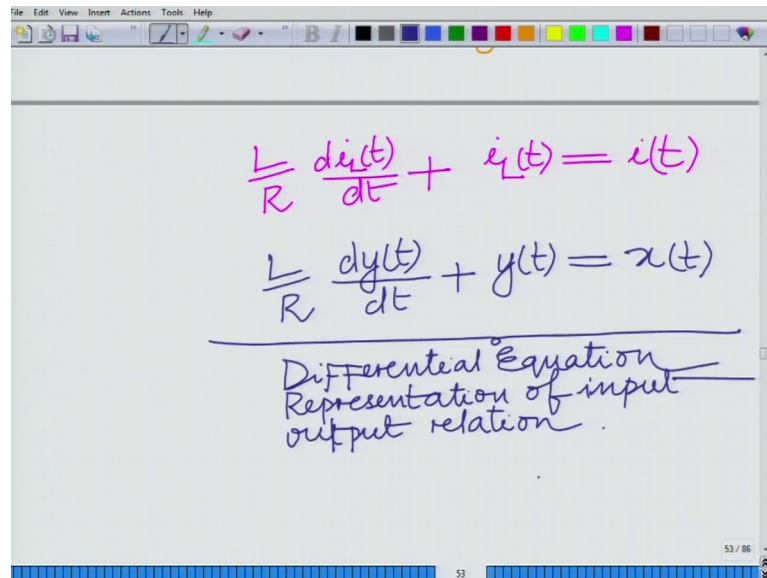 File Edit View Insert Actions Tools Help
B I
L/R di_L(t)/dt + i_L(t) = i(t)
L/R dy(t)/dt + y(t) = x(t)
Differential Equation
Representation of input
output relation.
53 / 86
53